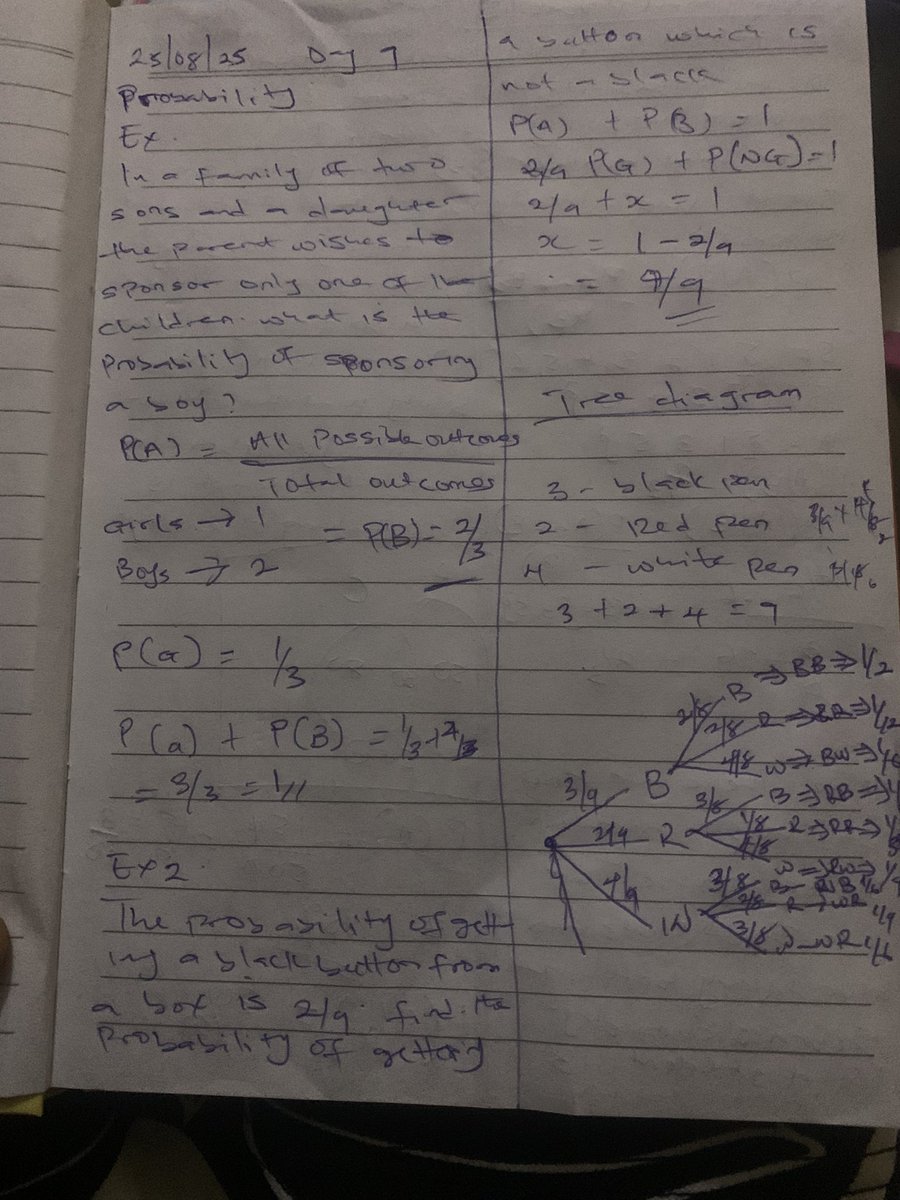 25/08/25 Day 7
Probability
Ex.
In a family of two
sons and a daughter
the parent wishes to
sponsor only one of the
children. what is the
probability of sponsoring
a boy?
P(A) = All Possible outcomes
Total outcomes
Girls → 1 = P(B) = 2/3
Boys → 2
P(G) = 1/3
P(G) + P(B) = 1/3 + 2/3
= 3/3 = 1//
Ex 2.
The probability of gett-
ing a black button from
a box is 2/9. find the
probability of getting
a button which is
not a black
P(A) + P(B) = 1
2/9 P(G) + P(NG) = 1
2/9 + x = 1
x = 1 - 2/9
= 7/9
Tree diagram
3 - black pen
2 - Red pen
4 - white pen
3 + 2 + 4 = 9
2/8 B ⇒ BB ⇒ 1/12
2/8 R ⇒ BR ⇒ 1/12
4/8 W ⇒ BW ⇒ 1/6
3/9 B
3/8 B ⇒ RB ⇒
2/9 R 1/8 R ⇒ RR ⇒
4/8 W ⇒ RW ⇒
3/8 B
4/9 W 2/8 R WR 1/9
3/8 W WR 1/6